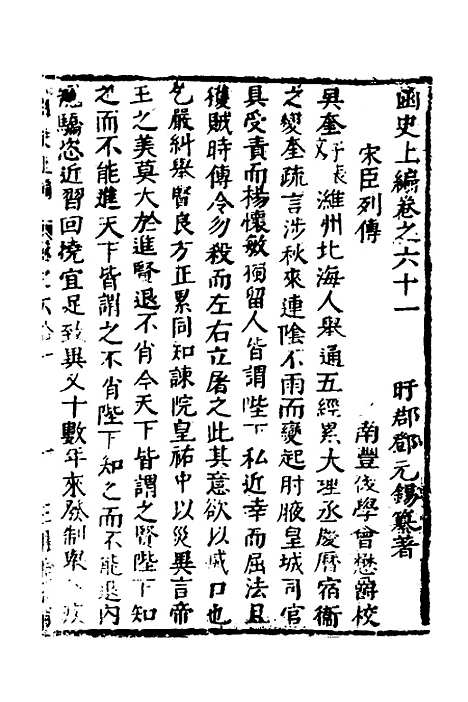 函史上編卷之六十一
盱郡鄧元錫纂著
宋臣列傳
南豐後學曾懋爵校
吳奎字長 濰州北海人舉通五經累大理丞慶曆宿衛
之變奎疏言涉秋來連陰不雨而變起肘腋皇城司官
具受責而楊懷敏獨留人皆謂陛下私近幸而屈法且
獲賊時傳令勿殺而左右立屠之此其意欲以滅口也
乞嚴糾舉賢良方正累同知諫院皇祐中以災異言帝
王之美莫大於進賢退不肖今天下皆謂之賢陛下知
之而不能進天下皆謂之不肖陛下知之而不能退內
寵驕恣近習回撓宜足致異又十數年來發制舉